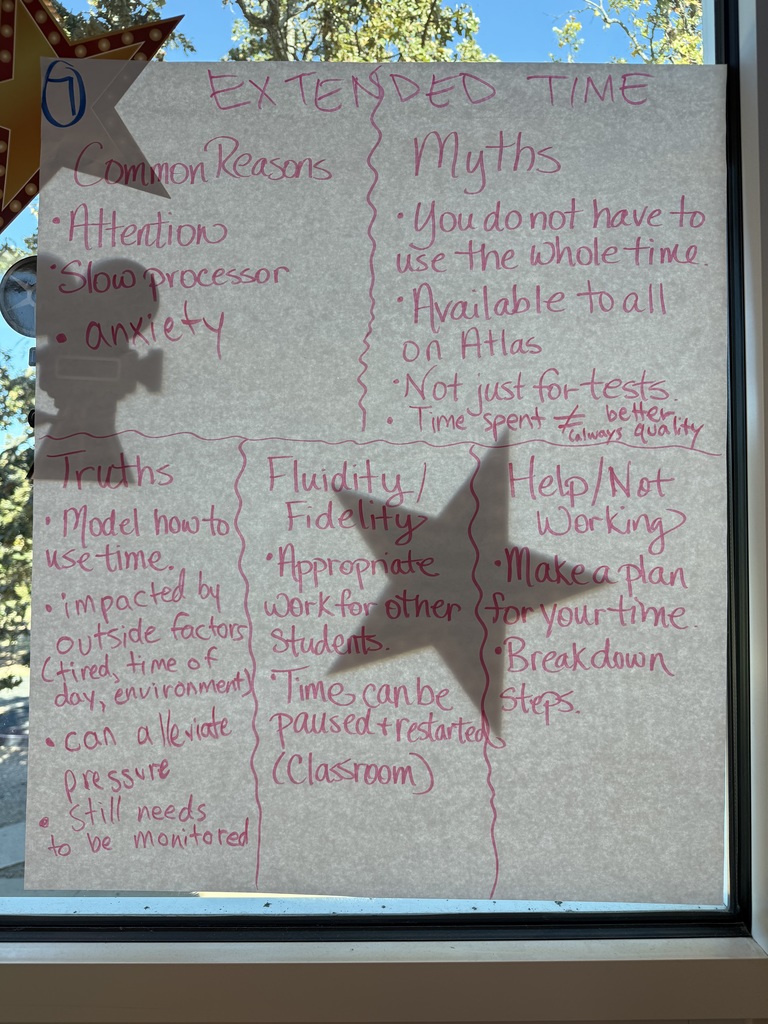 7
EXTENDED TIME
Common Reasons
• Attention
• Slow processor
• anxiety
Myths
• You do not have to
use the whole time.
• Available to all
on Atlas
• Not just for tests.
• Time spent ≠ better
(always quality
Truths
• Model how to
use time.
• impacted by
outside factors
(tired, time of
day, environment)
• can alleviate
pressure
• still needs
to be monitored
Fluidity/
Fidelity
• Appropriate
work for other
students.
• Time can be
paused + restarted
(Classroom)
Help/Not
Working
• Make a plan
for your time.
• Break down
steps.